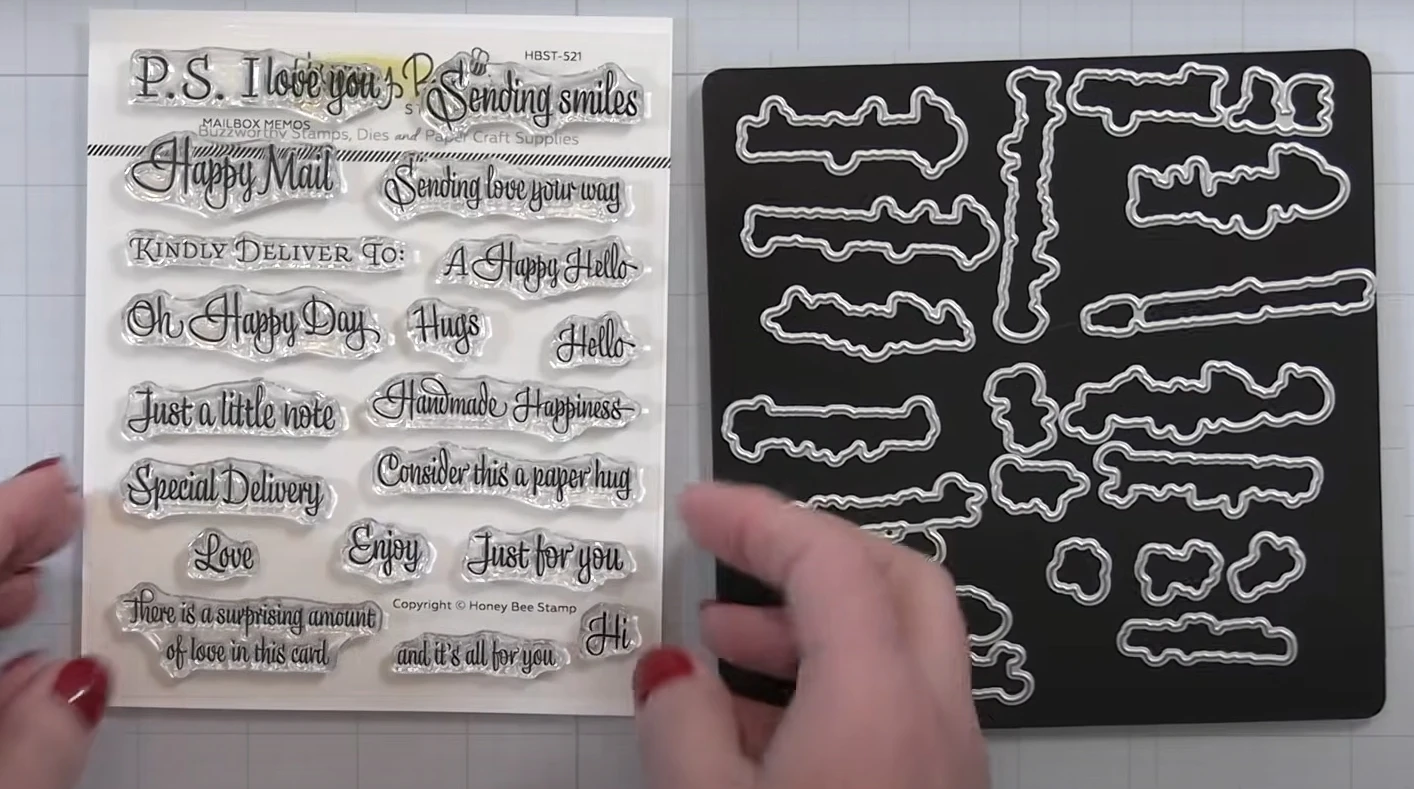 HBST-521
P.S. I love you
Sending smiles
MAILBOX MEMOS
Buzzworthy Stamps, Dies and Paper Craft Supplies
Happy Mail
Sending love your way
Kindly Deliver To:
A Happy Hello
Oh Happy Day
Hugs
Hello
Just a little note
Handmade Happiness
Special Delivery
Consider this a paper hug
Love
Enjoy
Just for you
there is a surprising amount
of love in this card
Copyright © Honey Bee Stamp
and it's all for you
Hi